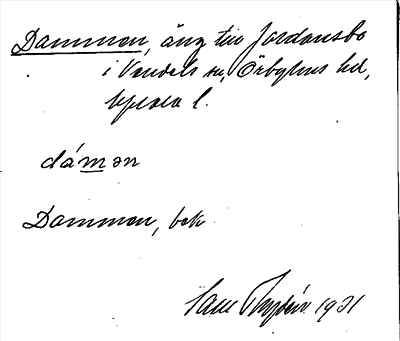 Dammen, äng till Jordansbo
i Vendels sn, Örbyhus hd,
Upsala l.
dámən
Dammen, bek.
1931